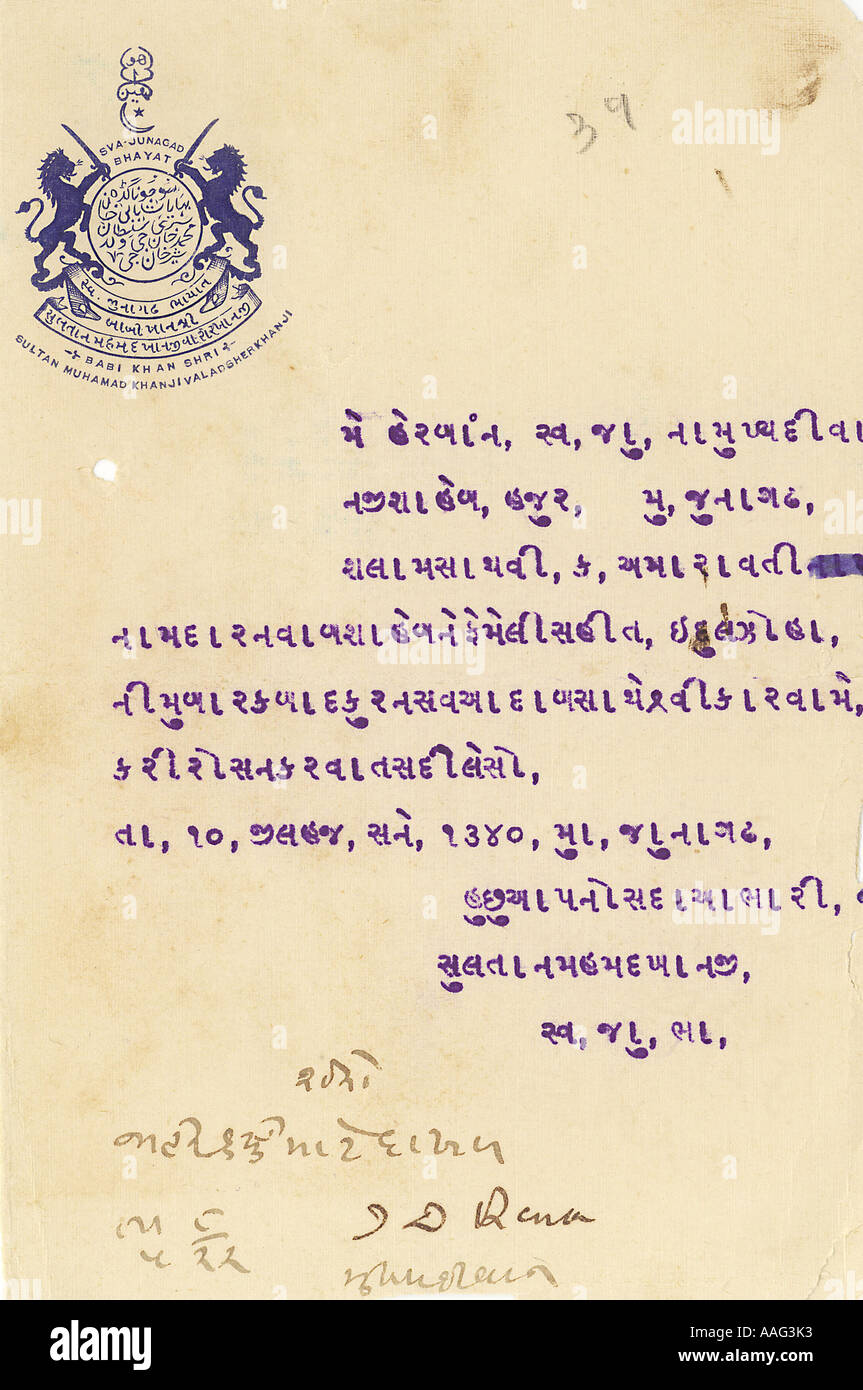 SVA-JUNAGAD
BHAYAT
સ્વ. જુનાગઢ ભાયાત
બાબી ખાનશ્રી
સુલતાનમહમદખાનજીવાશેરખાનજી
BABI KHAN SHRI
SULTAN MUHAMAD KHANJI VALADSHERKHANJI
૩૧
મે હેરબાંન, સ્વ, જાુ, નામુખ્યદીવા
નજીશાહેબ, હજુર, મુ, જુનાગઢ,
શલામસાથવી, ક, અમારાવતી
નામદારનવાબશાહેબનેફેમેલીસહીત, ઇદુલઝોહા,
નીમુબારકબાદકુરનસવઆદાબસાથેશ્વીકારવામે,
કરીરોસનકરવાતસદીલેસો,
તા, ૧૦, જીલહજ, સને, ૧૩૪૦, મુા, જાુનાગઢ,
હુછુઆપનોસદાઆભારી,
સુલતાનમહમદખાનજી,
સ્વ, જાુ, ભા,
alamy
Image ID: AAG3K3
www.alamy.com